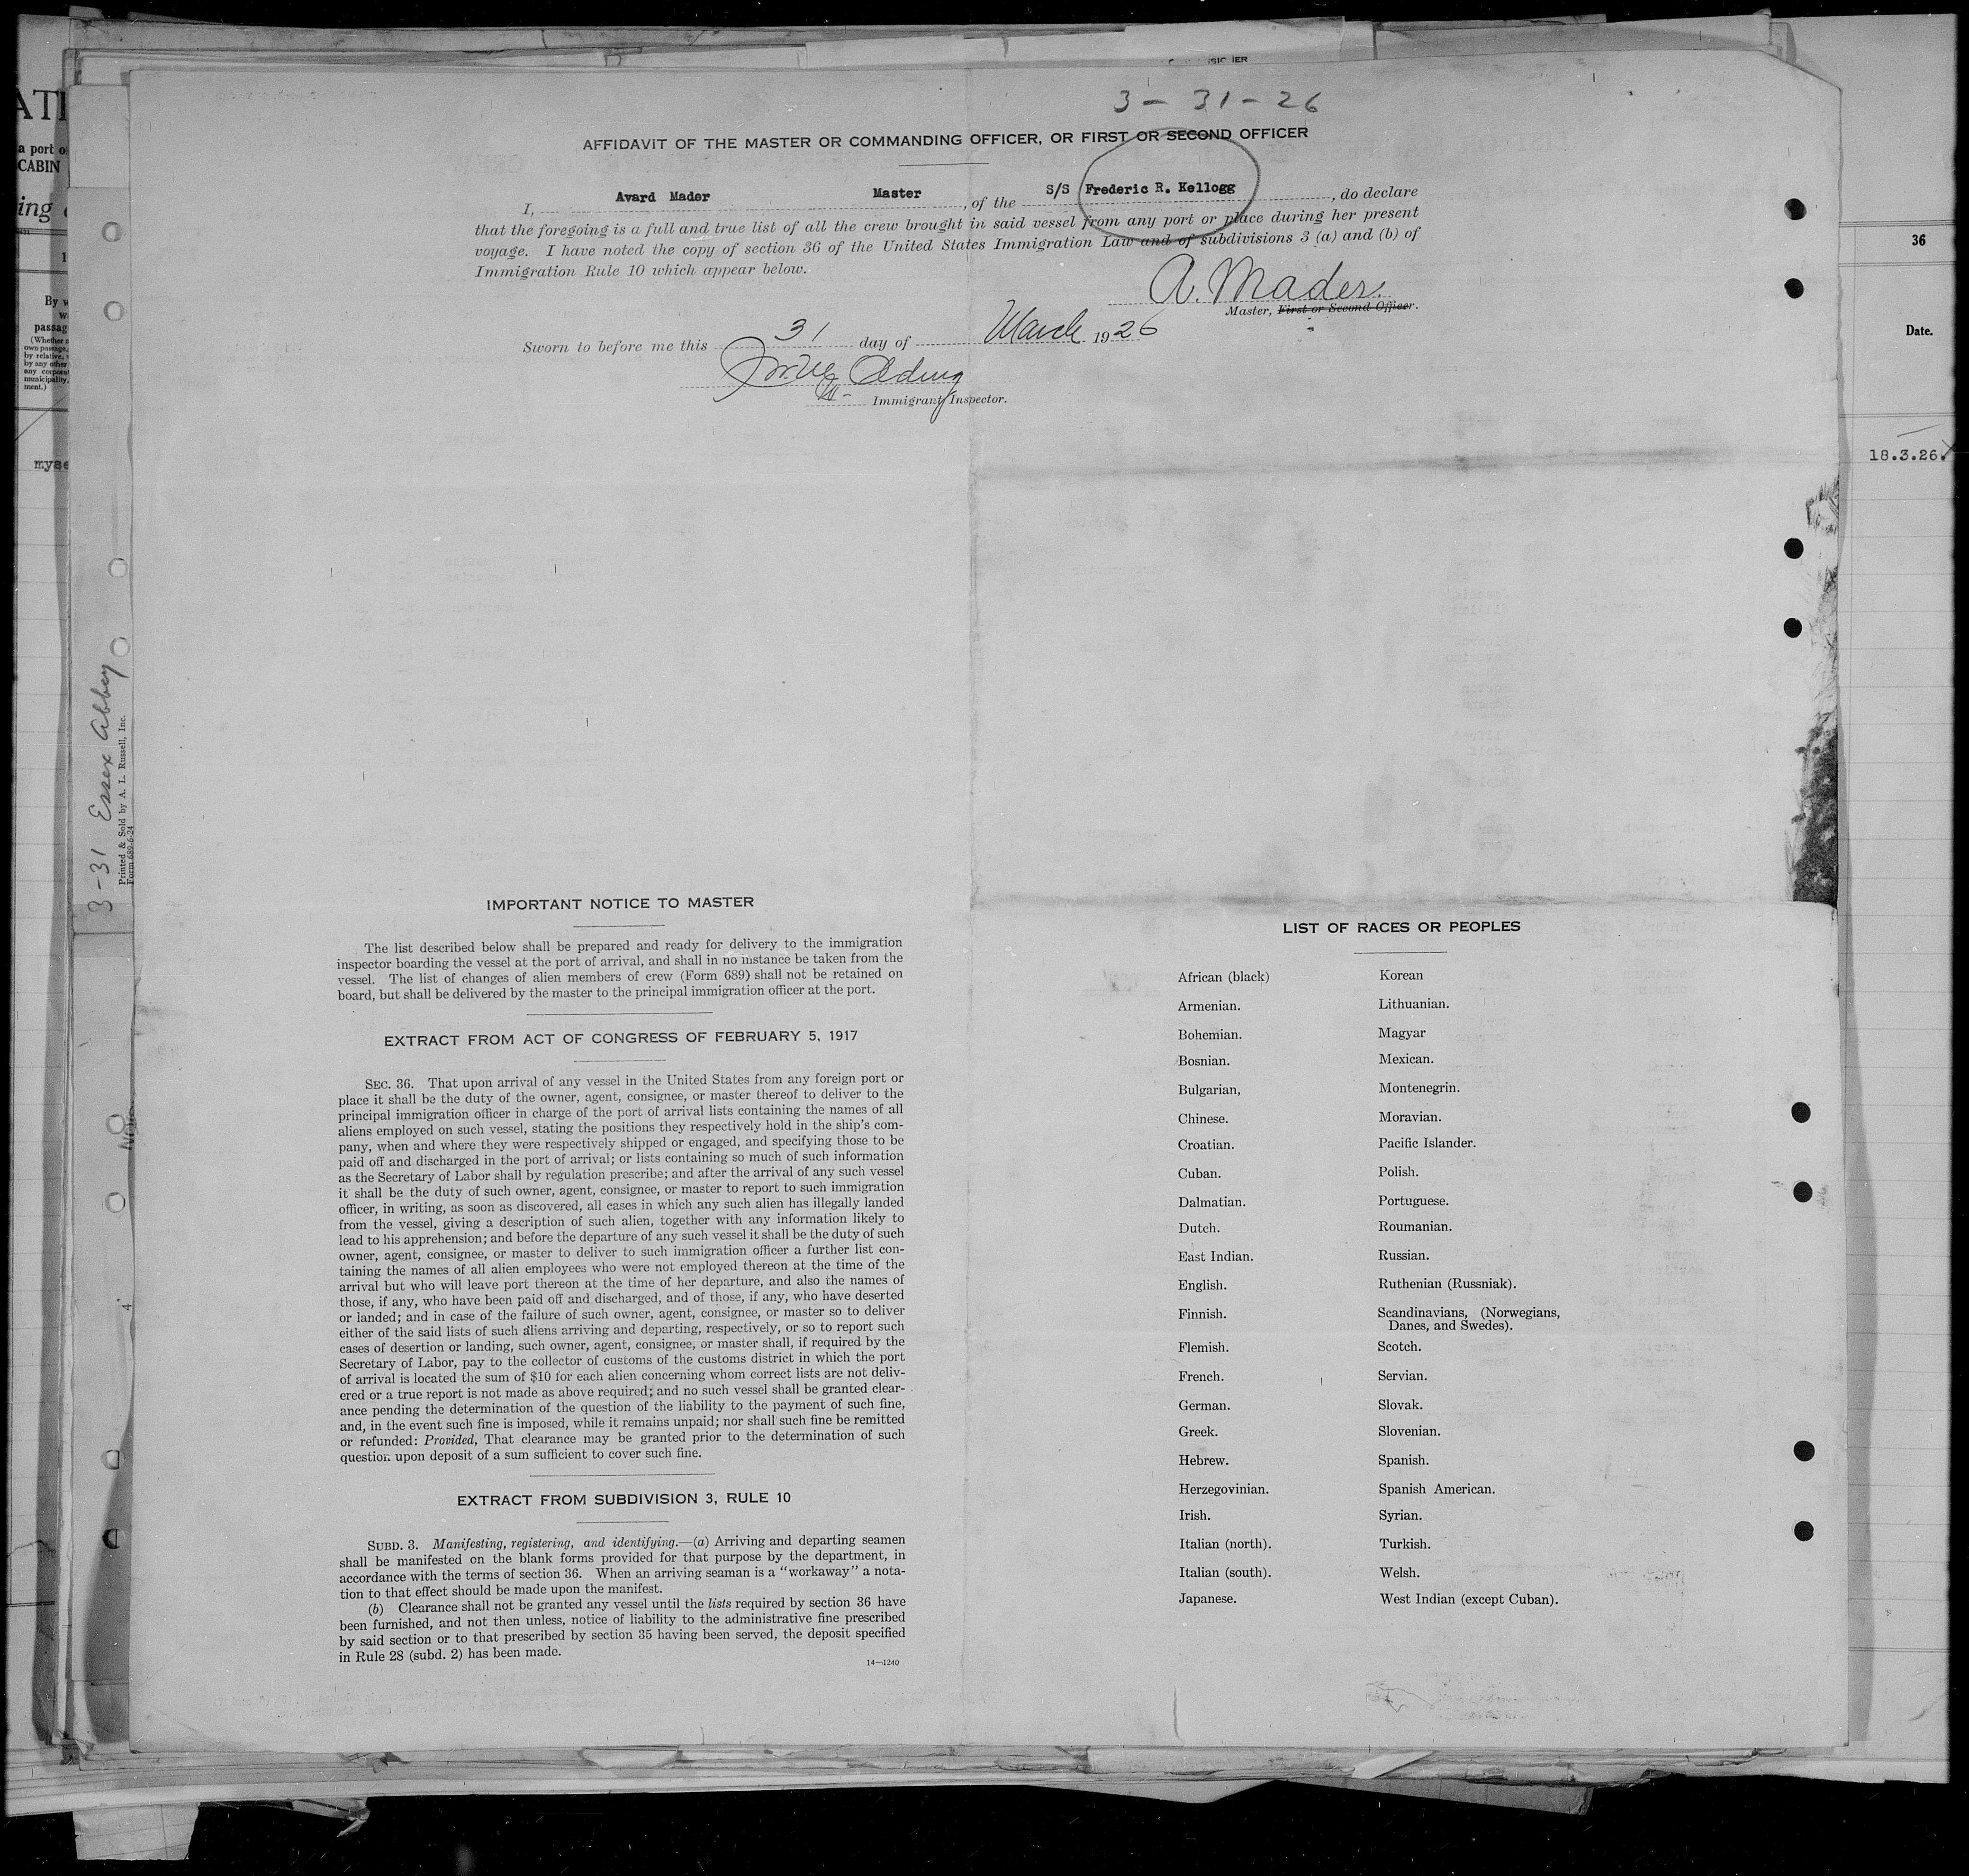 3 - 31 - 26
AFFIDAVIT OF THE MASTER OR COMMANDING OFFICER, OR FIRST OR SECOND OFFICER
I, Avard Mader Master, of the S/S Frederic R. Kellogg, do declare
that the foregoing is a full and true list of all the crew brought in said vessel from any port or place during her present
voyage. I have noted the copy of section 36 of the United States Immigration Law and of subdivisions 3 (a) and (b) of
Immigration Rule 10 which appear below.
A. Mader.
Master, First or Second Officer.
Sworn to before me this 31 day of March 1926
Immigrant Inspector.
IMPORTANT NOTICE TO MASTER
The list described below shall be prepared and ready for delivery to the immigration
inspector boarding the vessel at the port of arrival, and shall in no instance be taken from the
vessel. The list of changes of alien members of crew (Form 689) shall not be retained on
board, but shall be delivered by the master to the principal immigration officer at the port.
EXTRACT FROM ACT OF CONGRESS OF FEBRUARY 5, 1917
SEC. 36. That upon arrival of any vessel in the United States from any foreign port or
place it shall be the duty of the owner, agent, consignee, or master thereof to deliver to the
principal immigration officer in charge of the port of arrival lists containing the names of all
aliens employed on such vessel, stating the positions they respectively hold in the ship's com-
pany, when and where they were respectively shipped or engaged, and specifying those to be
paid off and discharged in the port of arrival; or lists containing so much of such information
as the Secretary of Labor shall by regulation prescribe; and after the arrival of any such vessel
it shall be the duty of such owner, agent, consignee, or master to report to such immigration
officer, in writing, as soon as discovered, all cases in which any such alien has illegally landed
from the vessel, giving a description of such alien, together with any information likely to
lead to his apprehension; and before the departure of any such vessel it shall be the duty of such
owner, agent, consignee, or master to deliver to such immigration officer a further list con-
taining the names of all alien employees who were not employed thereon at the time of the
arrival but who will leave port thereon at the time of her departure, and also the names of
those, if any, who have been paid off and discharged, and of those, if any, who have deserted
or landed; and in case of the failure of such owner, agent, consignee, or master so to deliver
either of the said lists of such aliens arriving and departing, respectively, or so to report such
cases of desertion or landing, such owner, agent, consignee, or master shall, if required by the
Secretary of Labor, pay to the collector of customs of the customs district in which the port
of arrival is located the sum of $10 for each alien concerning whom correct lists are not deliv-
ered or a true report is not made as above required; and no such vessel shall be granted clear-
ance pending the determination of the question of the liability to the payment of such fine,
and, in the event such fine is imposed, while it remains unpaid; nor shall such fine be remitted
or refunded: Provided, That clearance may be granted prior to the determination of such
question upon deposit of a sum sufficient to cover such fine.
EXTRACT FROM SUBDIVISION 3, RULE 10
SUBD. 3. Manifesting, registering, and identifying.—(a) Arriving and departing seamen
shall be manifested on the blank forms provided for that purpose by the department, in
accordance with the terms of section 36. When an arriving seaman is a "workaway" a nota-
tion to that effect should be made upon the manifest.
(b) Clearance shall not be granted any vessel until the lists required by section 36 have
been furnished, and not then unless, notice of liability to the administrative fine prescribed
by said section or to that prescribed by section 35 having been served, the deposit specified
in Rule 28 (subd. 2) has been made.
14—1240
LIST OF RACES OR PEOPLES
African (black) Korean
Armenian. Lithuanian.
Bohemian. Magyar
Bosnian. Mexican.
Bulgarian, Montenegrin.
Chinese. Moravian.
Croatian. Pacific Islander.
Cuban. Polish.
Dalmatian. Portuguese.
Dutch. Roumanian.
East Indian. Russian.
English. Ruthenian (Russniak).
Finnish. Scandinavians, (Norwegians,
Danes, and Swedes).
Flemish. Scotch.
French. Servian.
German. Slovak.
Greek. Slovenian.
Hebrew. Spanish.
Herzegovinian. Spanish American.
Irish. Syrian.
Italian (north). Turkish.
Italian (south). Welsh.
Japanese. West Indian (except Cuban).
3-31 Essex Abbey
Printed & Sold by A. L. Russell, Inc.
Form 689-6-24
4
a port o
CABIN
ing
By w
passag
(Whether
own passage,
by relative,
by any other
any corporat
municipality,
ment.)
myse
36
Date.
18.3.26.